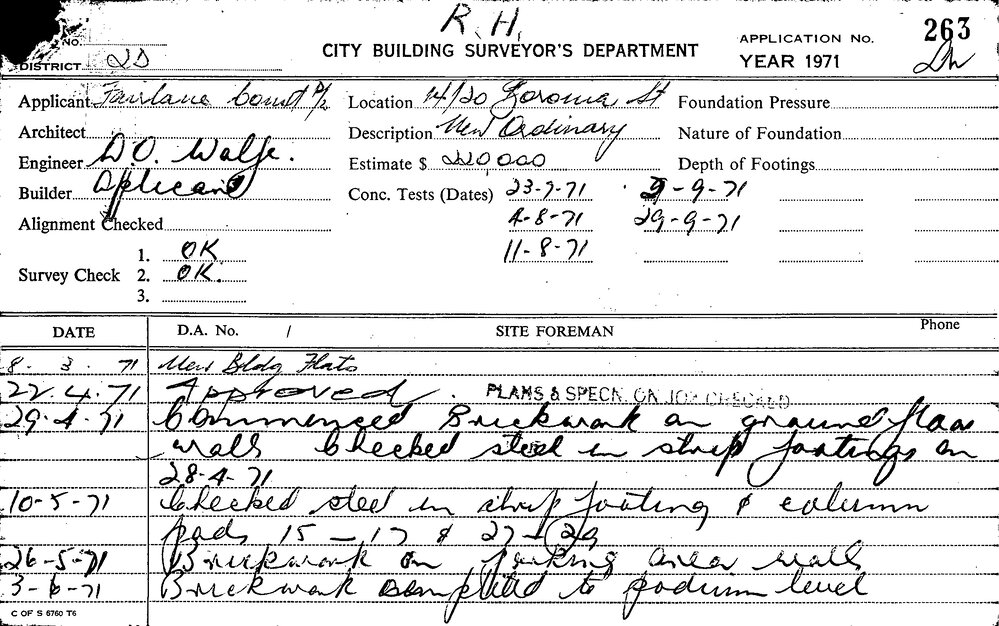 R.H.
263
No.
CITY BUILDING SURVEYOR'S DEPARTMENT
APPLICATION No.
DISTRICT 2D
YEAR 1971
Applicant Fairlane Const P/L
Location 14/20 St
Foundation Pressure
Architect
Description New Ordinary
Nature of Foundation
Engineer D.O. Wolfe.
Estimate $ 220000
Depth of Footings
Builder Aplicant
Conc. Tests (Dates) 23-7-71 9-9-71
Alignment Checked
4-8-71 29-9-71
1. OK
11-8-71
Survey Check 2. OK.
3.
DATE D.A. No. / SITE FOREMAN Phone
8. 3. 71 New Bldg Flats
22.4.71 Approved. PLANS & SPECN. ON JOB CHECKED
29-4-71 Commenced Brickwork on ground floor
walls Checked steel in strip footings on
28-4-71
10-5-71 Checked steel in strip footing & column
pads 15 - 17 & 27-29
26-5-71 Brickwork on parking area walls
3-6-71 Brickwork completed to podium level
C OF S 6760 T6